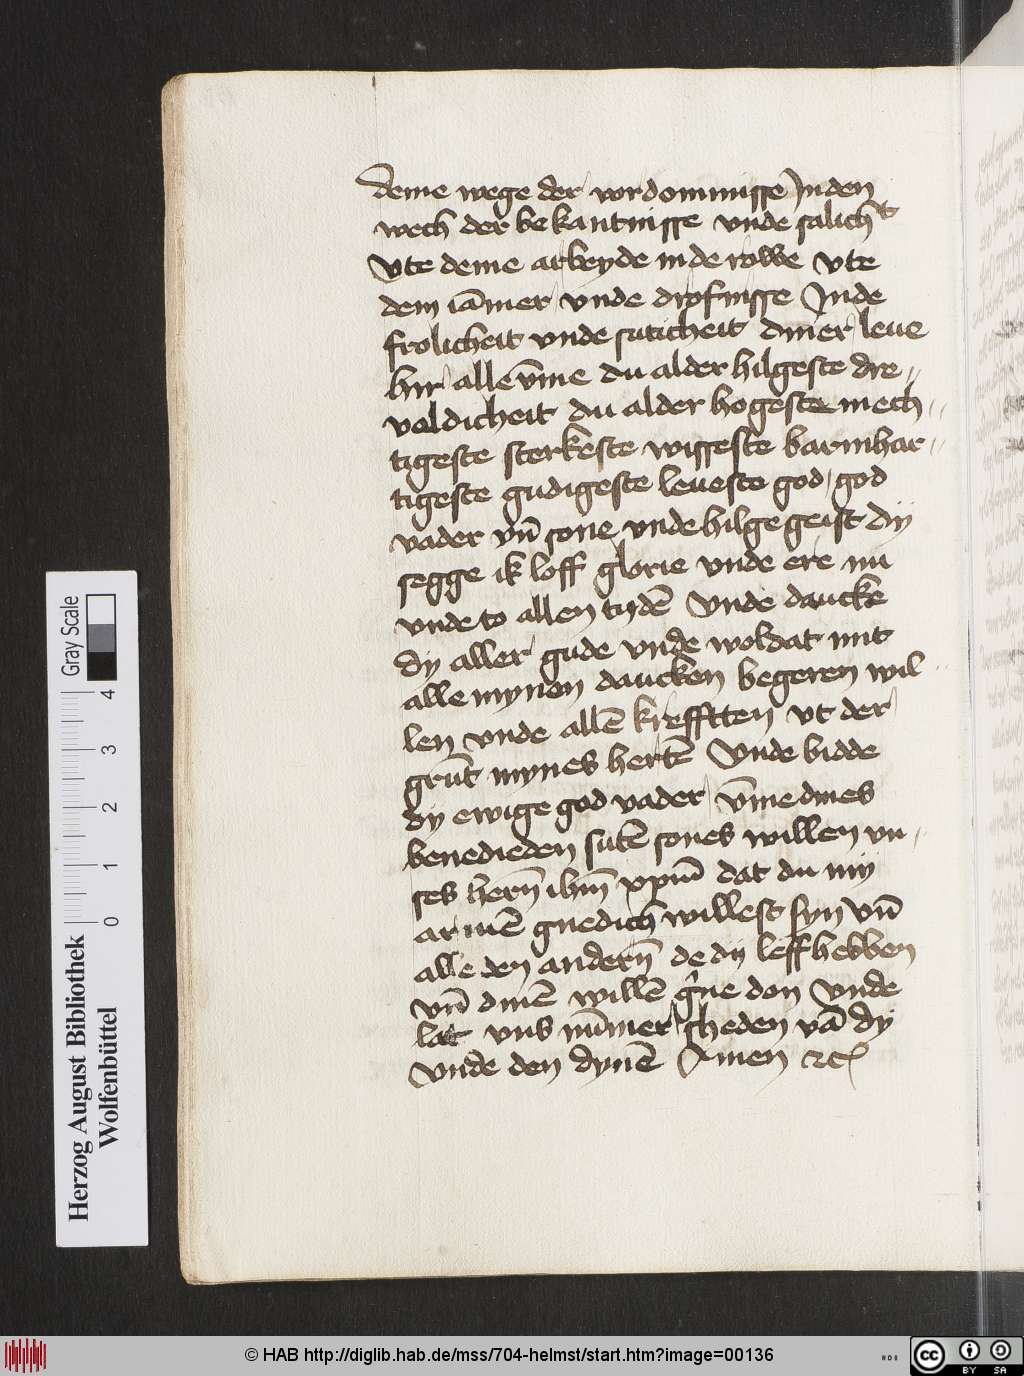 deme wege der vordomnisse Jn den
wech der bekantnisse vnde salichᵗ
Vte deme arbeyde in de rowe Vte
dem iāmer vnde drofnisse Jn de
frolicheit vnde suticheit diner leue
hir alle v̄me du alder hilgeste dre„
valdicheit du alder hogeste mech„
tigeste sterkeste wisseste barmhar„
tigeste gudigeste leueste god god
vader vn̄ sone vnde hilge geist dij
segge ik loff glorie vnde ere nu
vnde to allen tydē Vnde dancke
dy aller gude vnde woldat mit
alle mynen dancken begeren wil„
len vnde allē krefften vt der
grūt mynes hertē Vnde bidde
dy ewige god vader v̄me dines
benedieden sutē sones willen vn„
ses hern̄ ihm̄ xpm̄ dat du my
armē gnedich willest syn Vn̄
alle den andern̄ de dy leff hebben
vn̄ dinē willē g'ne don Vnde
lat vns nūmer scheden vā dy
Vnde den dynē Amen ꝛc
Herzog August Bibliothek
Wolfenbüttel
0 1 2 3 4
Gray Scale
© HAB http://diglib.hab.de/mss/704-helmst/start.htm?image=00136
cc BY SA